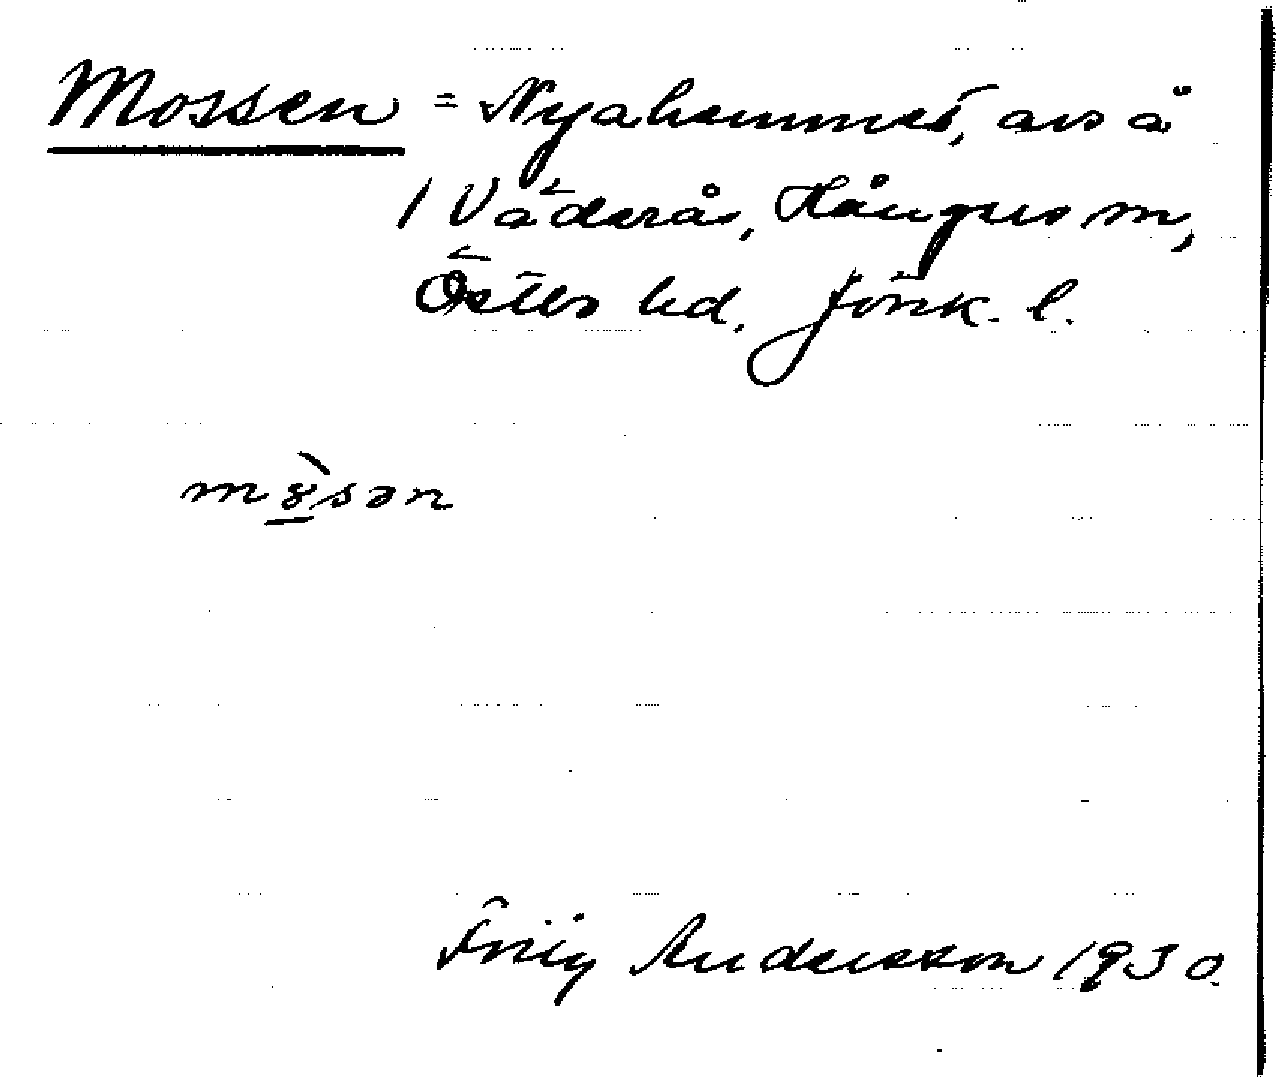 Mossen = Nyahemmet, avs å
1 Väderås, Hångers sn,
Östbo hd. Jönk. l.
mo̱̍sən
Frig Andersson 1930.